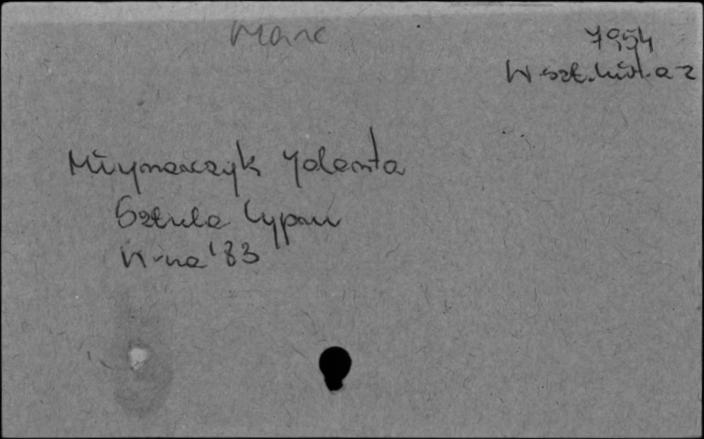 Marc
7954
W-szt. lud. a-z
Młynarczyk Jolanta
Sztuka Cypru
W-wa '83